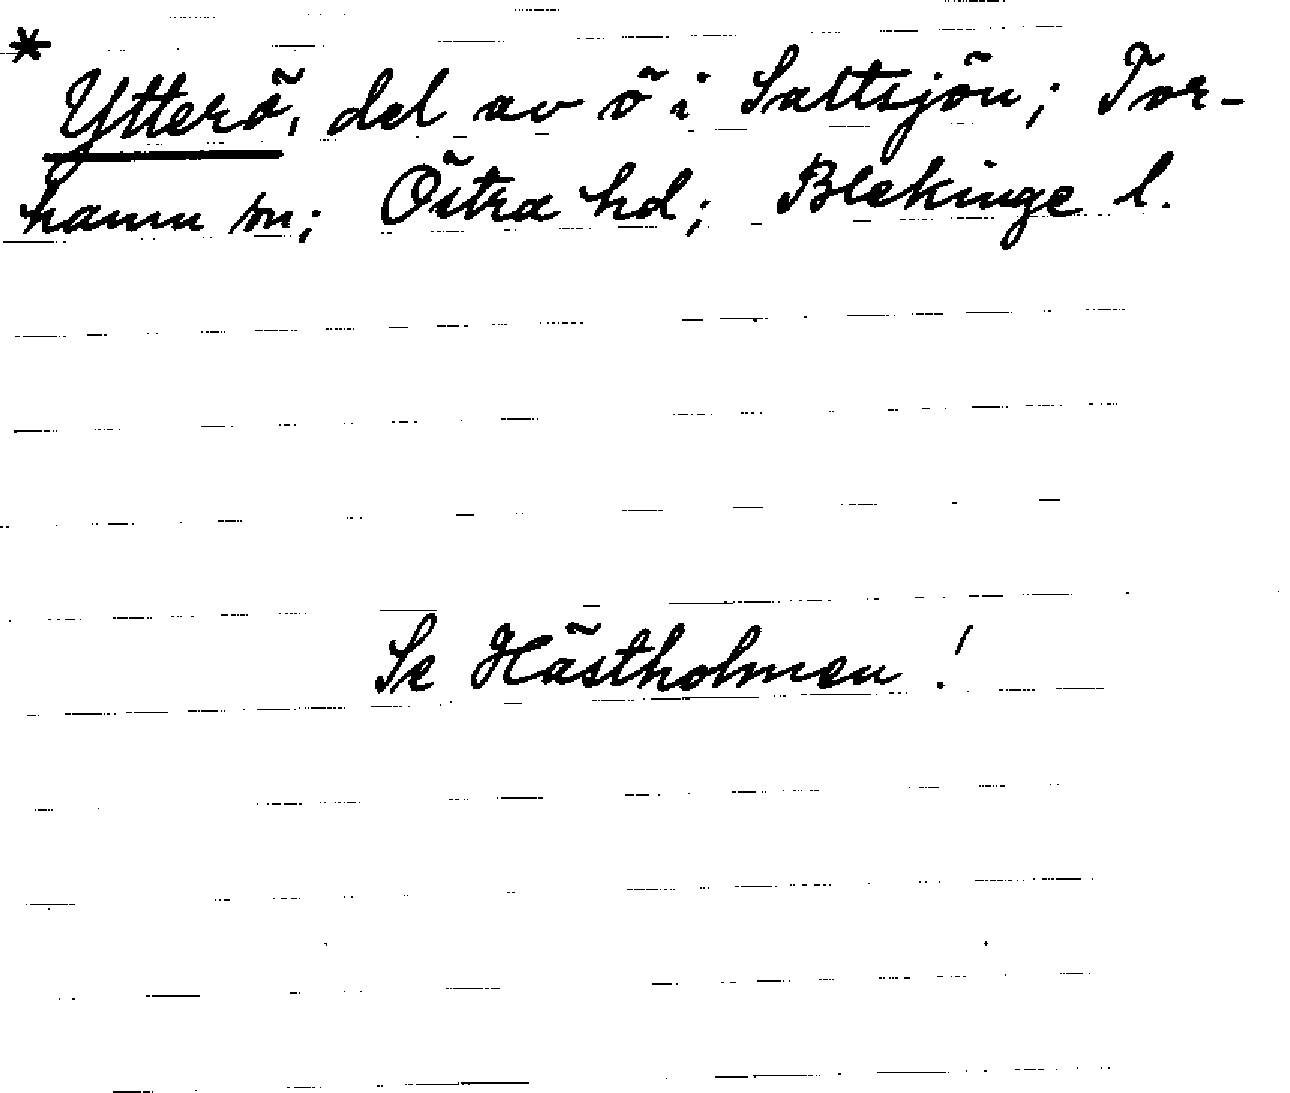 * Ytterö, del av ö i Saltsjön; Tor-
hamn sn; Östra hd; Blekinge l.
Se Hästholmen!